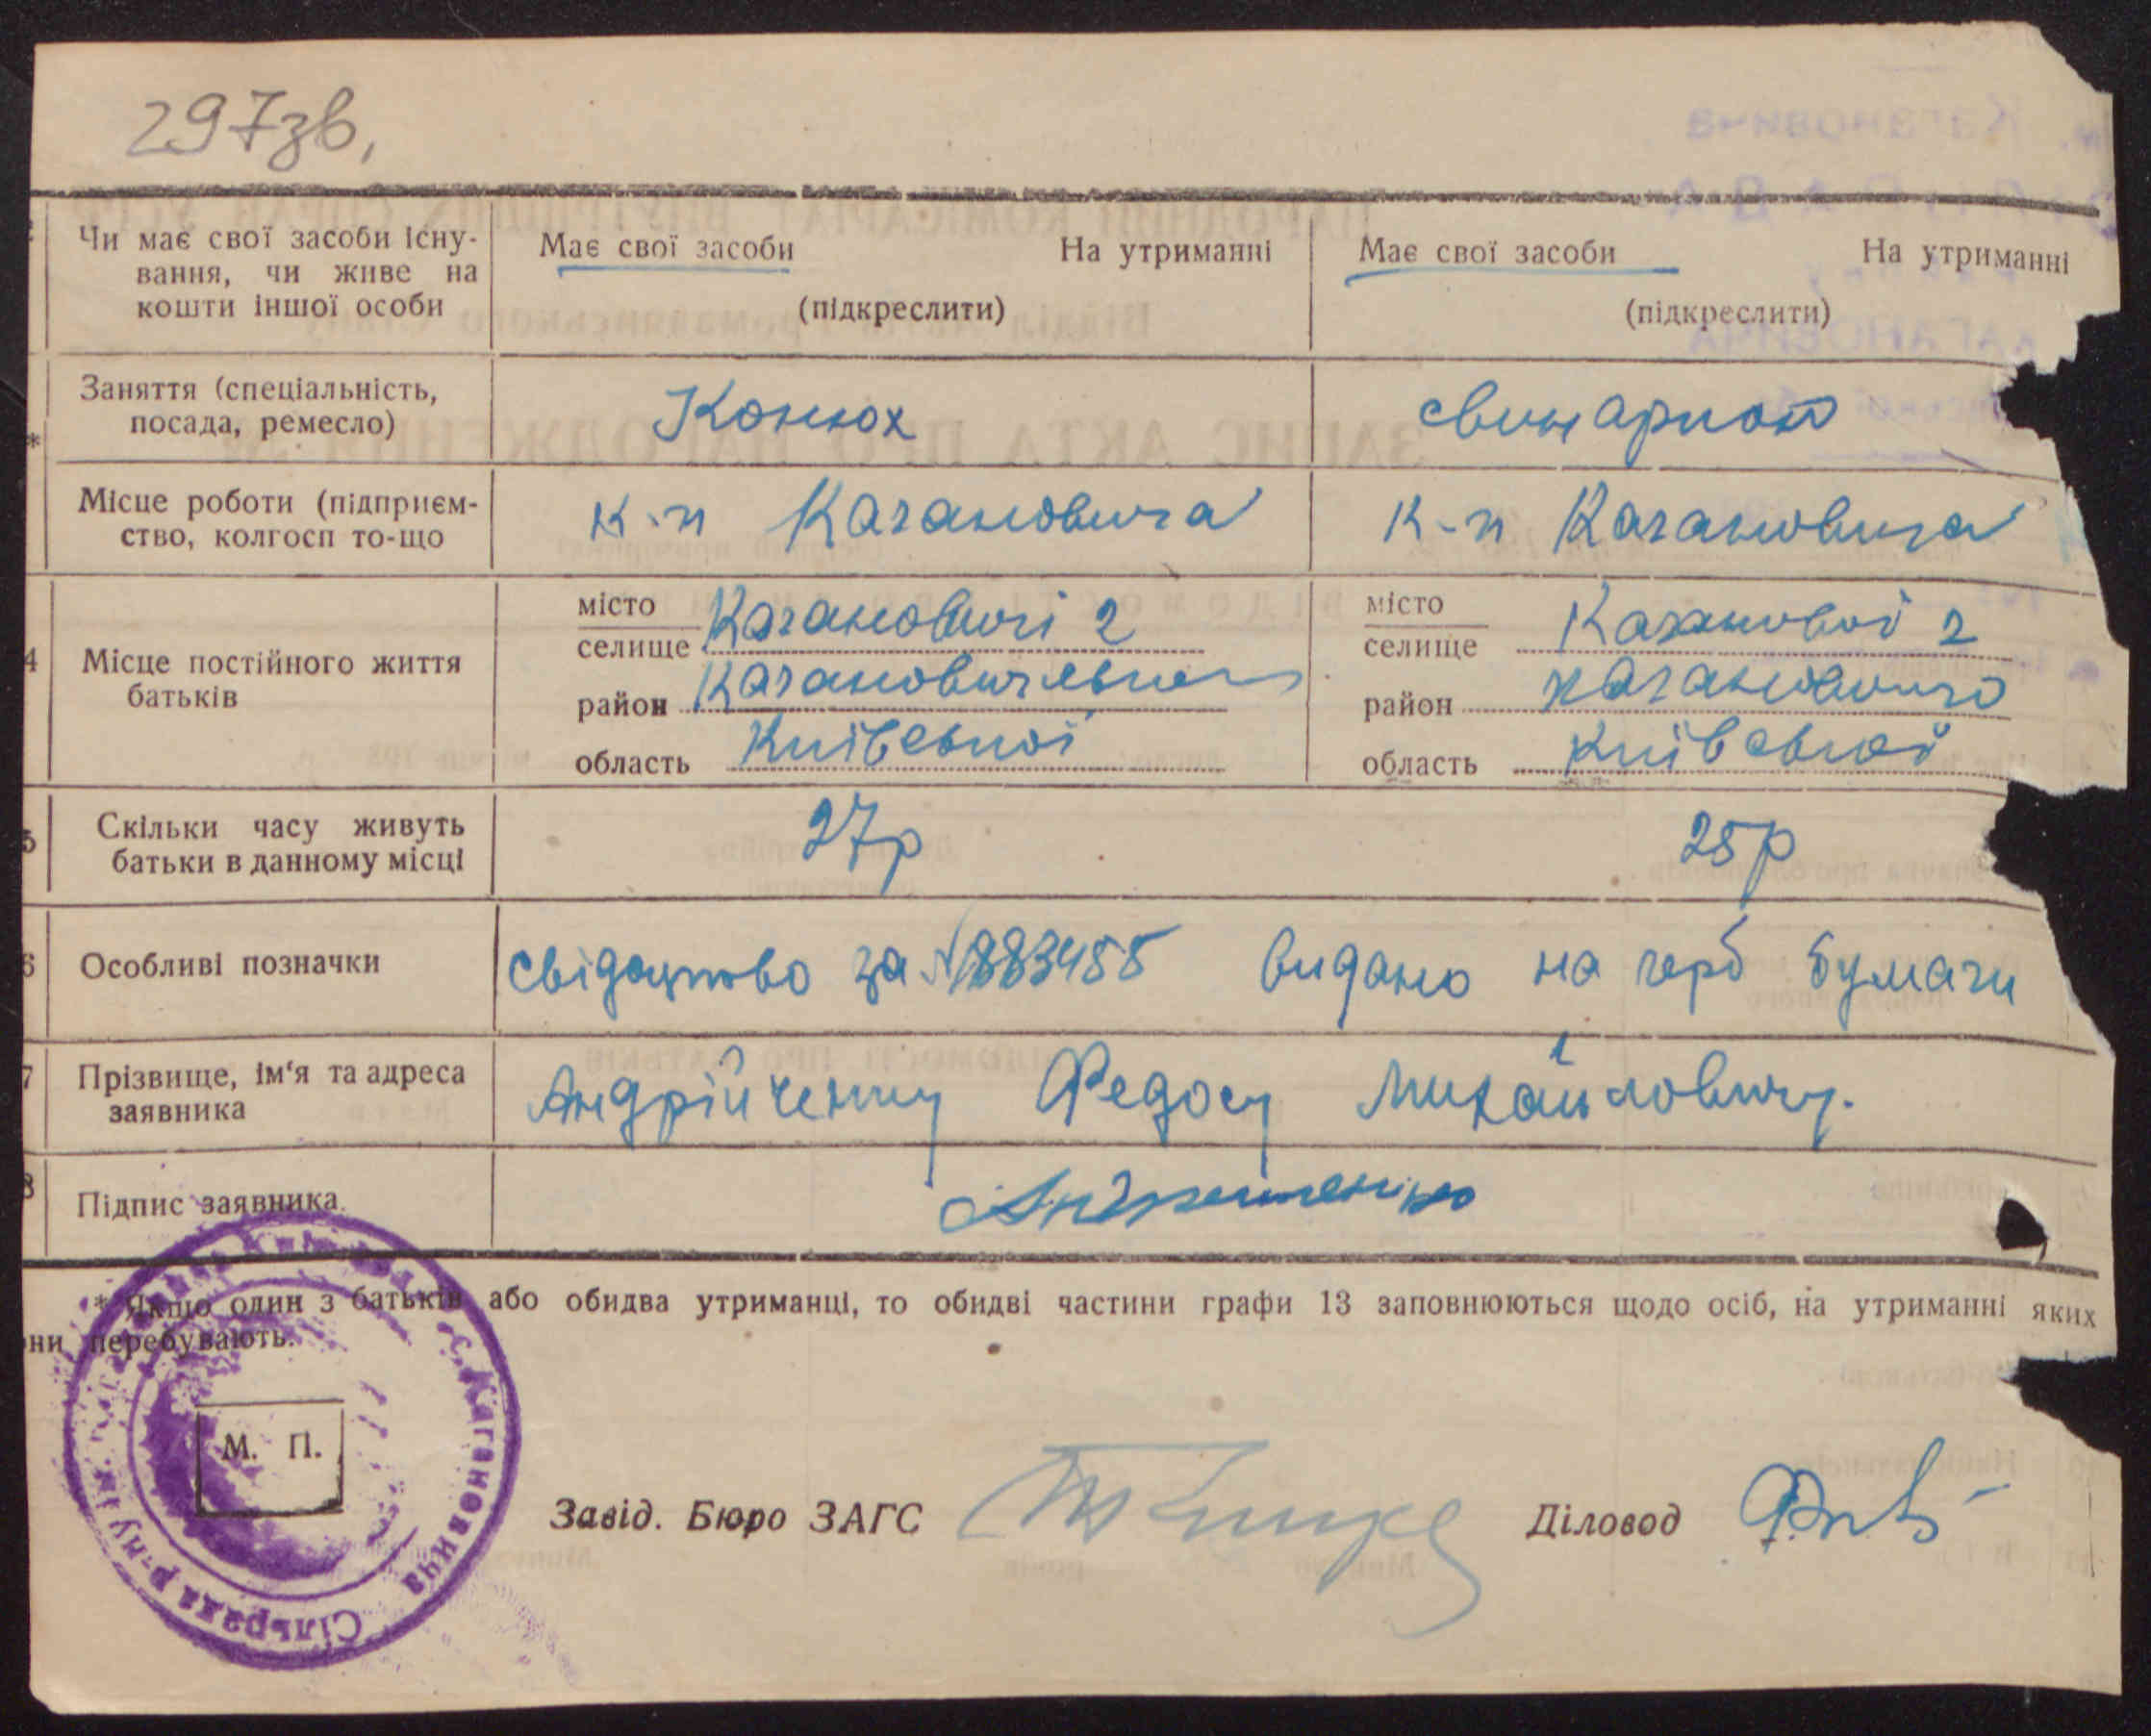 297зв,
Чи має свої засоби існу-
вання, чи живе на
кошти іншої особи
Має свої засоби На утриманні
(підкреслити)
Має свої засоби На утриманні
(підкреслити)
Заняття (спеціальність,
посада, ремесло)
Конюх
свинаркою
Місце роботи (підприєм-
ство, колгосп то-що
к-п Кагановича
к-п Кагановича
4 Місце постійного життя
батьків
місто
селище Кагановичі 2
район
область Київської
місто
селище 2
район Кагановича
область Київської
5 Скільки часу живуть
батьки в данному місці
27р
25р
6 Особливі позначки
свідоцтво за № 883488 видано на герб бумаги
7 Прізвище, ім'я та адреса
заявника
Андрійченку Федосу Михайловичу.
8 Підпис заявника.
* Якщо один з батьків або обидва утриманці, то обидві частини графи 13 заповнюються щодо осіб, на утриманні яких
они перебувають.
М. П.
с. Кагановича
Сільрада р-ну ім.
Завід. Бюро ЗАГС
Діловод